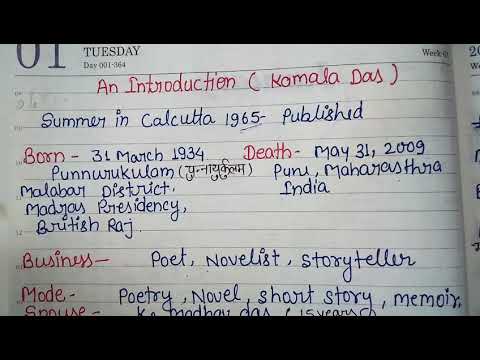 01 TUESDAY Week 01
Day 001-364
An Introduction ( Kamala Das )
Summer in Calcutta 1965- Published
Born - 31 March 1934 Death - May 31, 2009
Punnurukulam (पुन्नायुर्कुलम) Punu, Maharasthra
Malabar District. India
Madras Presidency,
British Raj.
Business - Poet, Novelist, Storyteller
Mode - Poetry, Novel, short story, memoir,
Spouse - K. madhav das (15 years)